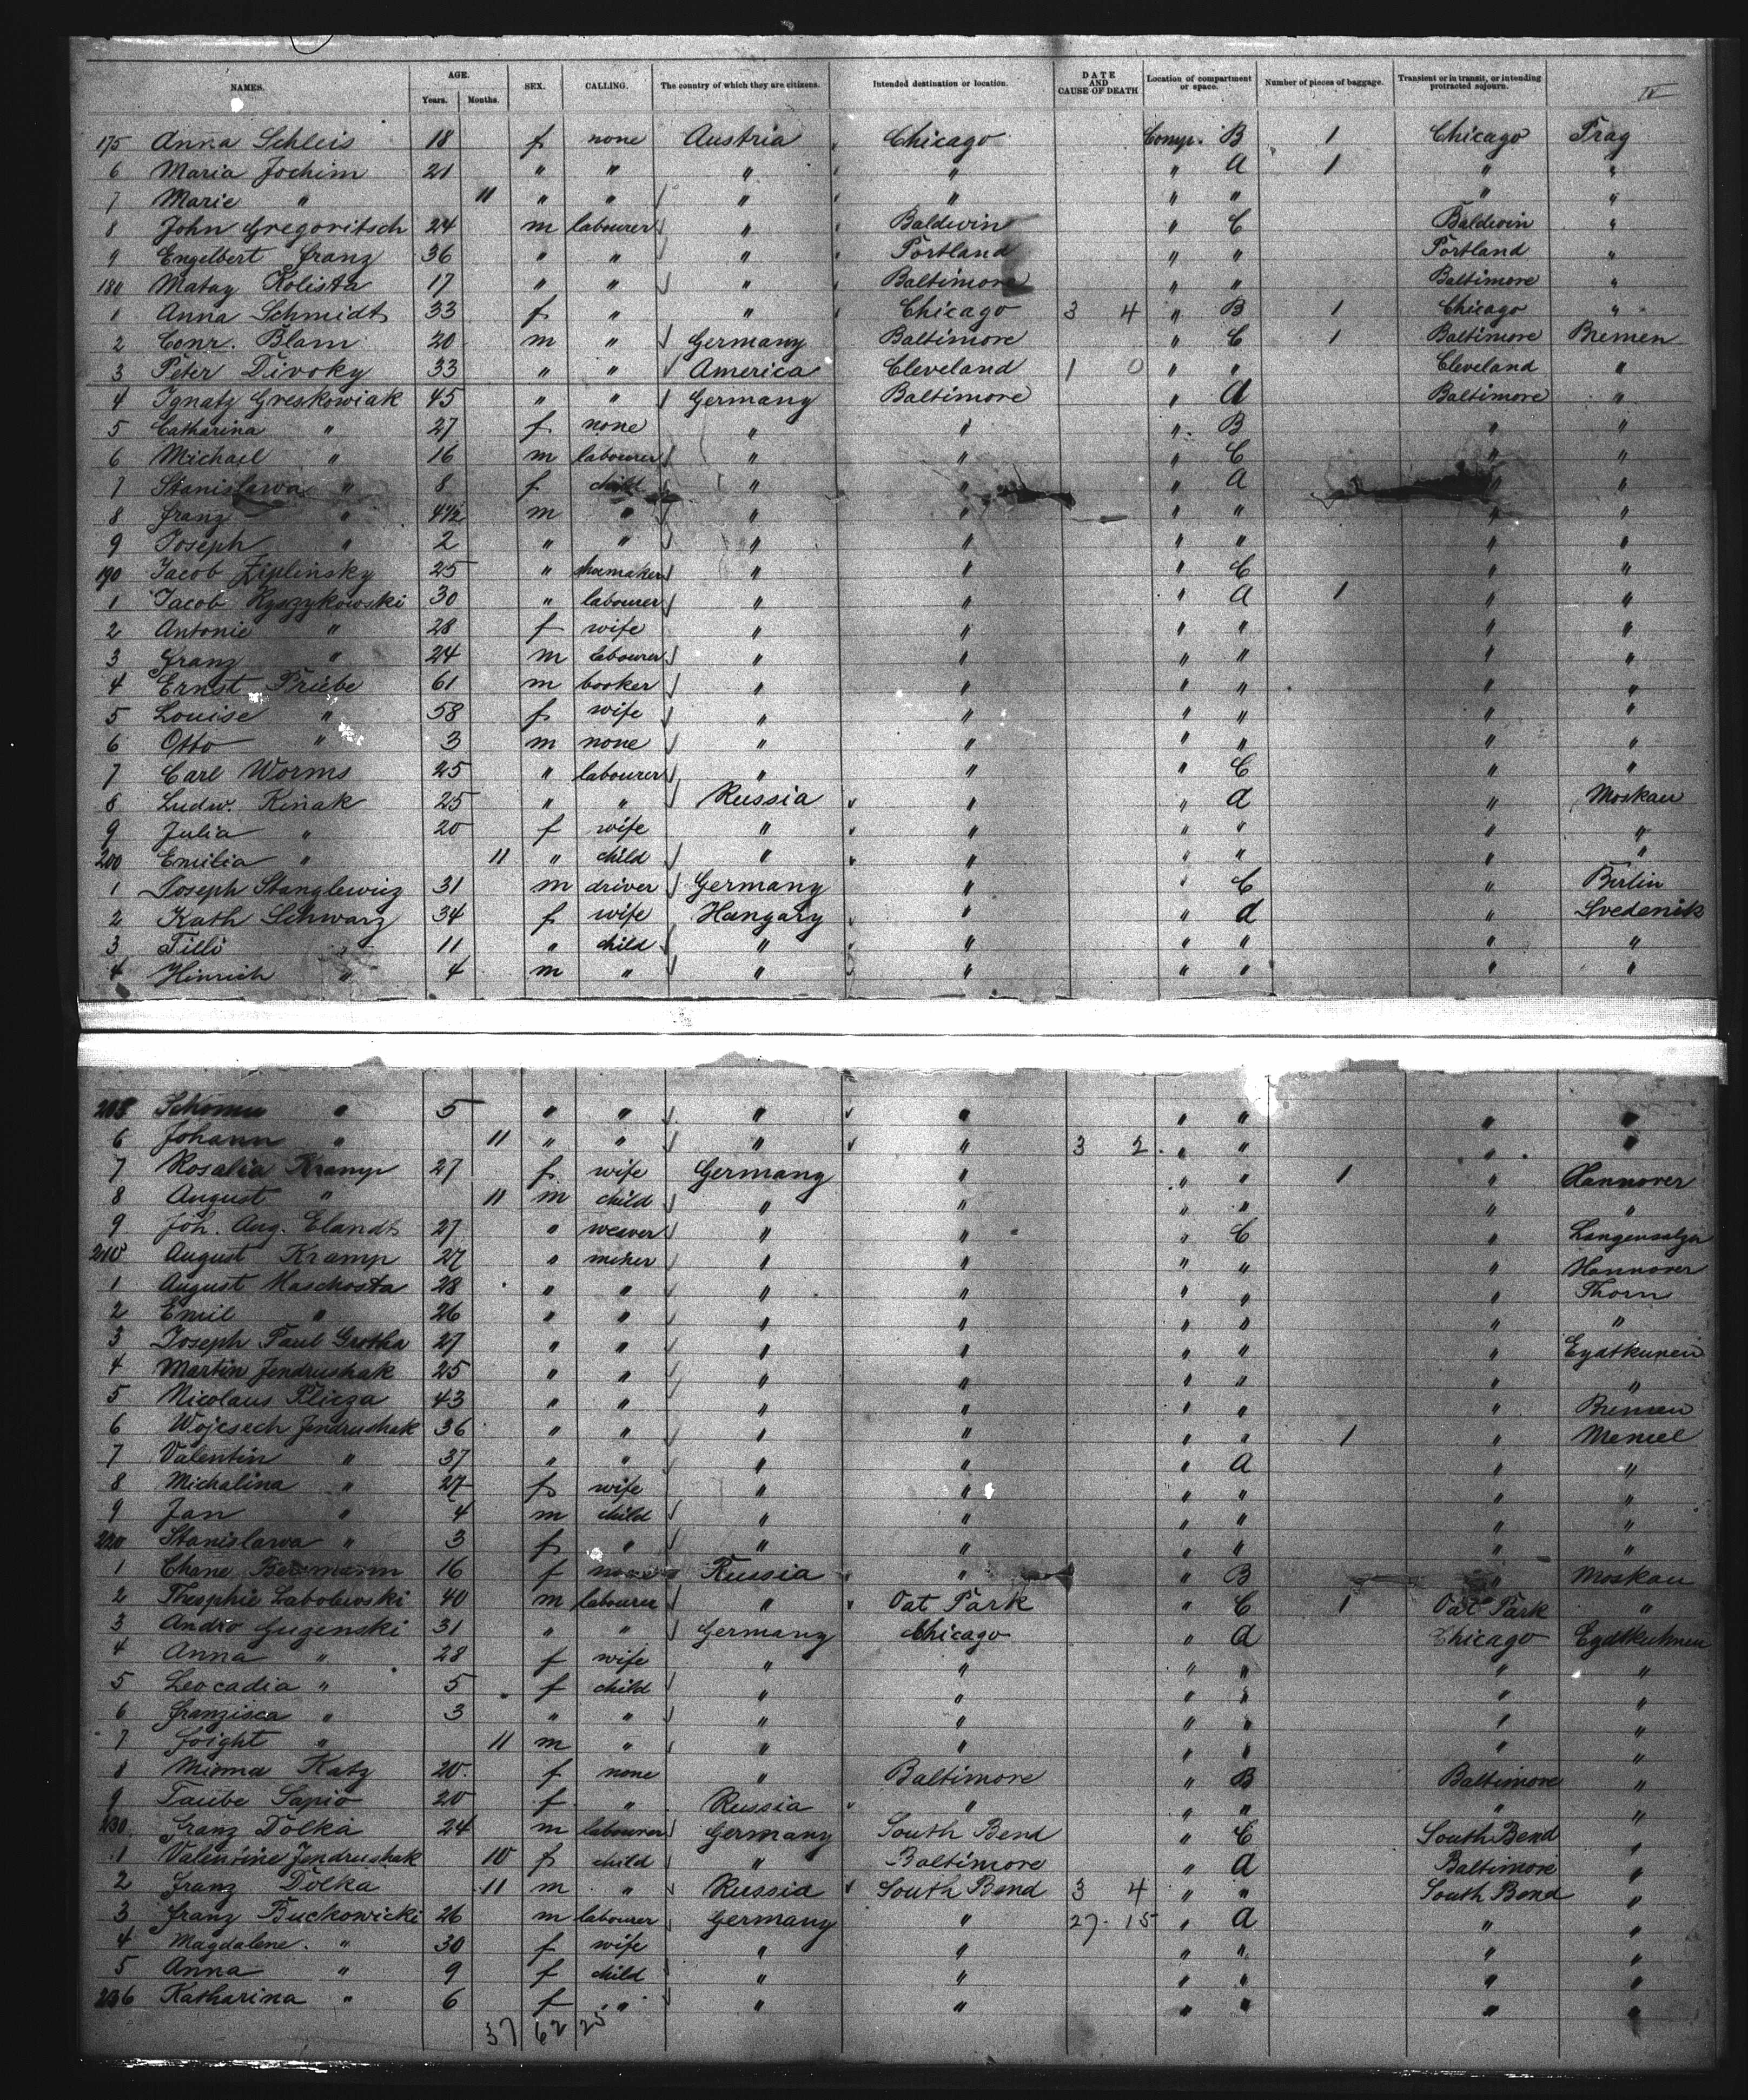 NAMES. AGE. Years. Months. SEX. CALLING. The country of which they are citizens. Intended destination or location. DATE AND CAUSE OF DEATH Location of compartment or space. Number of pieces of baggage. Transient or in transit, or intending protracted sojourn. IV
175 Anna Schleis 18 f none Austria Chicago Comp. B 1 Chicago Prag
6 Maria Jochim 21 " " " " " A 1 " "
7 Marie " 11 " " " " " " " "
8 John Gregoritsch 24 m labourer " Baldwin " C Baldwin "
9 Engelbert Franz 36 " " " Portland " " Portland "
180 Matay Kolista 17 " " " Baltimore " " Baltimore "
1 Anna Schmidt 33 f " " Chicago 3 4 " B 1 Chicago "
2 Conr. Blam 20 m " Germany Baltimore " C 1 Baltimore Bremen
3 Peter Divoky 33 " " America Cleveland 1 0 " " Cleveland "
4 Ignatz Greskowiak 45 " " Germany Baltimore " A Baltimore "
5 Catharina " 27 f none " " " B " "
6 Michael " 16 m labourer " " " C " "
7 Stanislawa " 8 f child " " " A " "
8 Franz " 4½ m " " " " " " "
9 Joseph " 2 " " " " " " " "
190 Jacob Ziplinsky 25 " shoemaker " " " C " "
1 Jacob Ryszykowski 30 " labourer " " " A 1 " "
2 Antonie " 28 f wife " " " " " "
3 Franz " 24 m labourer " " " " " "
4 Ernst Priebe 61 m booker " " " " " "
5 Louise " 58 f wife " " " " " "
6 Otto " 3 m none " " " " " "
7 Carl Worms 25 " labourer " " " C " "
8 Ludw. Kinak 25 " " Russia " " A " Moskau
9 Julia " 20 f wife " " " " " "
200 Emilia " 11 " child " " " " " "
1 Joseph Stanglewicz 31 m driver Germany " " C " Berlin
2 Kath Schwarz 34 f wife Hungary " " A " Svedenik
3 Tilli " 11 " child " " " " " "
4 Hinrich " 4 m " " " " " " "
205 " 5 " " " " " " " "
6 Johann " 11 " " " " 3 2 " " " "
7 Rosalia Kramp 27 f wife Germany " " " 1 " Hannover
8 August " 11 m child " " " " " "
9 Joh. Aug. Elandt 27 " weaver " " " C " Langensalza
210 August Kramp 27 " miner " " " " " Hannover
1 August Maschosta 28 " " " " " " " Thorn
2 Emil " 26 " " " " " " " "
3 Joseph Paul Grotha 27 " " " " " " " Eydtkunen
4 Martin Jendrushak 25 " " " " " " " "
5 Nicolaus Plicza 43 " " " " " " " Bremen
6 Wojcsech Jendrushak 36 " " " " " " 1 " Memel
7 Valentin " 37 " " " " " A " "
8 Michalina " 27 f wife " " " " " "
9 Jan " 4 m child " " " " " "
220 Stanislawa " 3 f " " " " " " "
1 Chane Bermann 16 f none Russia " " B " Moskau
2 Thesphie Labolewski 40 m labourer " Oat Park " C 1 Oat Park "
3 Andro Gugenski 31 " " Germany Chicago " A Chicago Eydtkuhnen
4 Anna " 28 f wife " " " " " "
5 Leocadia " 5 f child " " " " " "
6 Franzisca " 3 " " " " " " " "
7 " 11 m " " " " " " "
8 Miema Katz 20 f none " Baltimore " B Baltimore "
9 Taube Sapio 20 f " Russia " " " " "
230 Franz Dolka 24 m labourer Germany South Bend " C South Bend "
1 Valentine Jendrushak 10 f child " Baltimore " A Baltimore "
2 Franz Dolka 11 m " Russia South Bend 3 4 " " South Bend "
3 Franz Buckowicki 26 m labourer Germany " 27 - 15 " A " "
4 Magdalene " 30 f wife " " " " " "
5 Anna " 9 f child " " " " " "
236 Katharina " 6 f " " " " " " "
37 62 25